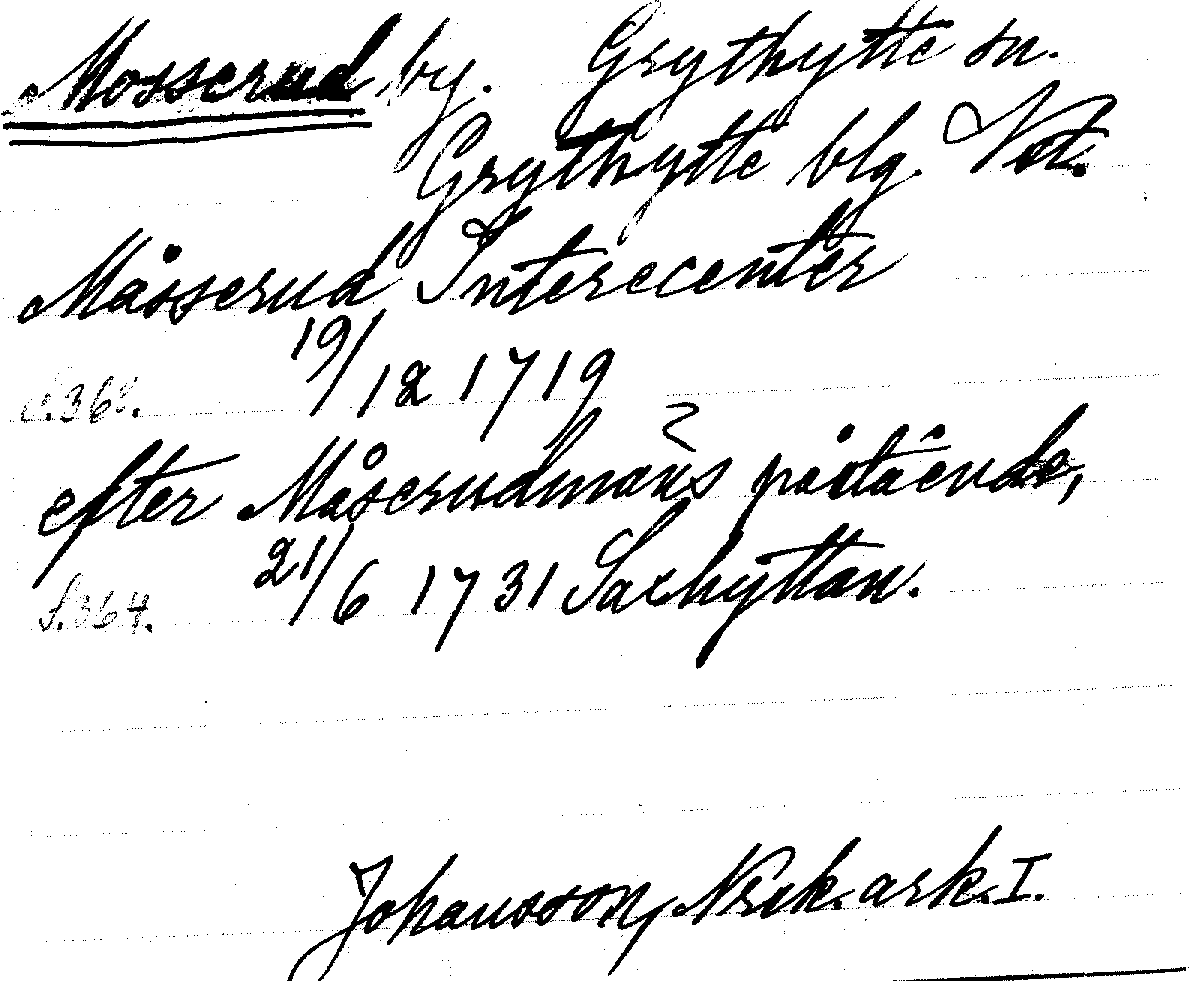 Mosserud by. Grythytte sn.
Grythytte blg. Vstl.
Måsserud Interecenter
19/12 1719
s.368.
efter Måserudmans påståends,
21/6 1731 Saxhyttan.
s.364.
Johansson, Nsik. ark. I.